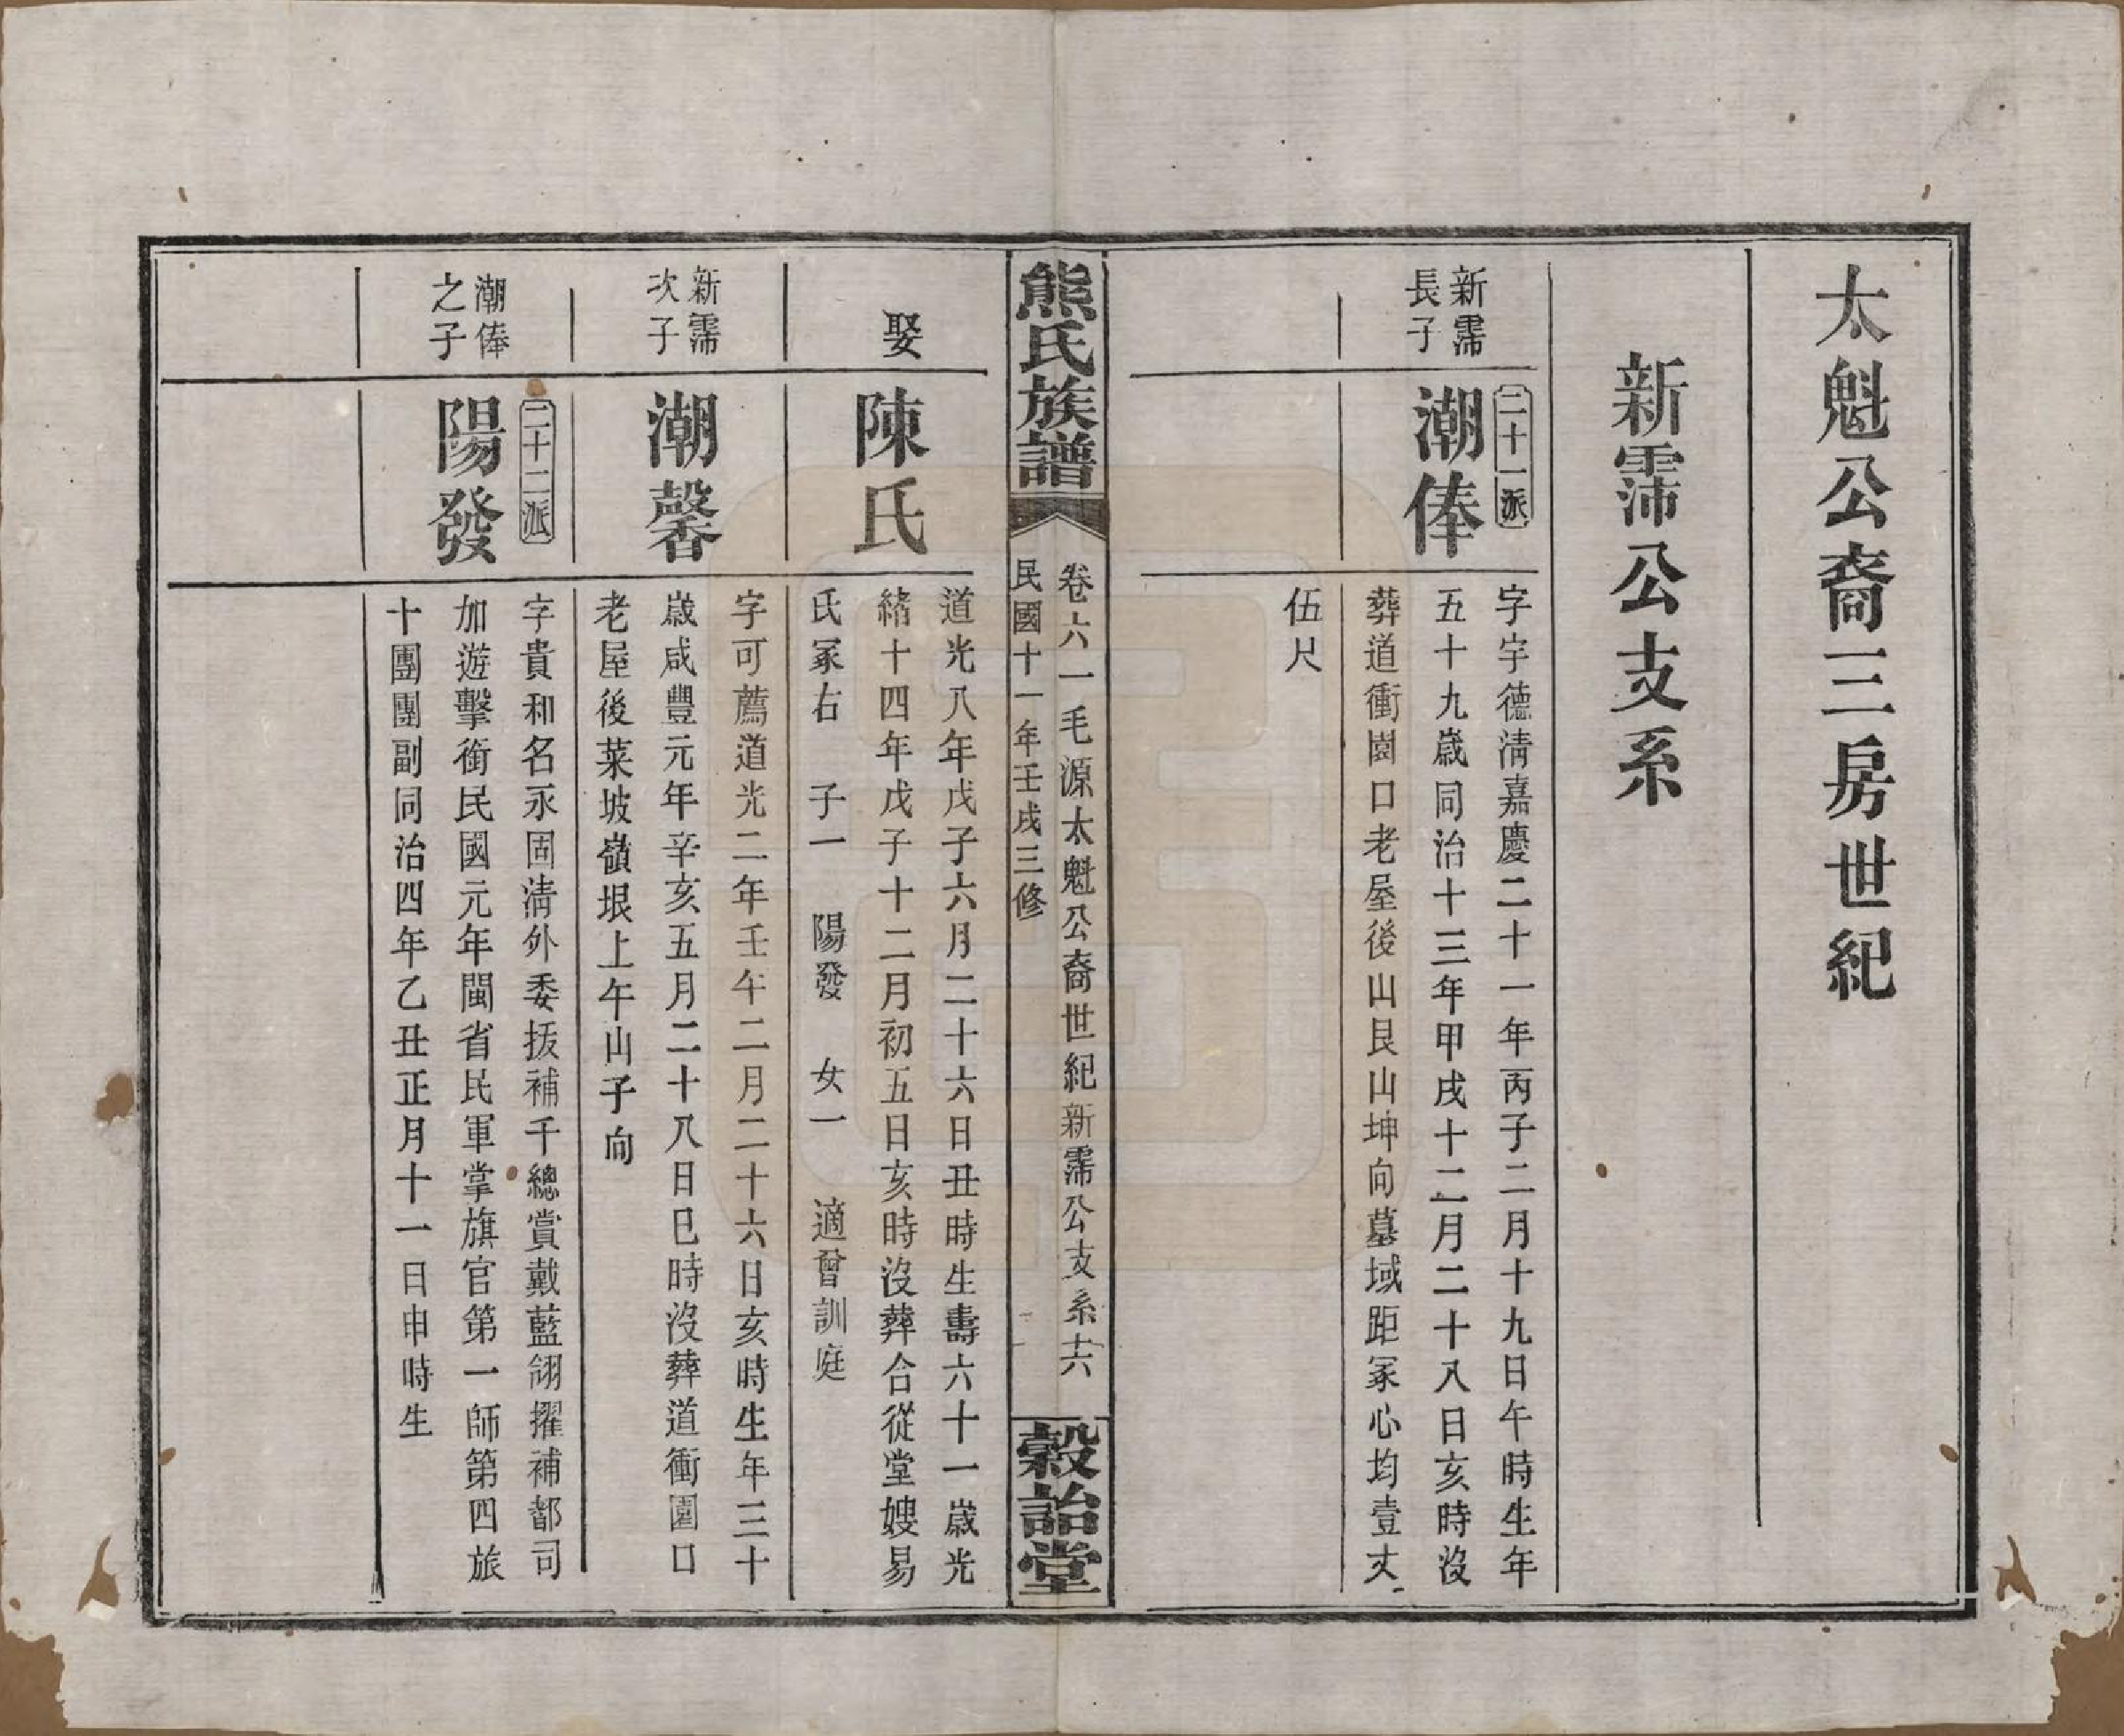 太魁公裔三房世紀
新霈公支系
新霈
長子
二十一派
潮俸
字字德清嘉慶二十一年丙子二月十九日午時生年
五十九歲同治十三年甲戌十二月二十八日亥時沒
葬道衝園口老屋後山艮山坤向墓域距冢心均壹丈
伍尺
熊氏族譜
卷六一毛源太魁公裔世紀新霈公支系十六
民國十一年壬戌三修
穀詒堂
娶
陳氏
道光八年戊子六月二十六日丑時生壽六十一歲光
緒十四年戊子十二月初五日亥時沒葬合從堂嫂易
氏冢右 子一 陽發 女一 適曾訓庭
新霈
次子
潮馨
字可薦道光二年壬午二月二十六日亥時生年三十
歲咸豐元年辛亥五月二十八日巳時沒葬道衝園口
老屋後菜坡嶺垠上午山子向
潮俸
之子
二十二派
陽發
字貴和名永固清外委拔補千總賞戴藍翎擢補都司
加遊擊銜民國元年閩省民軍掌旗官第一師第四旅
十團團副同治四年乙丑正月十一日申時生